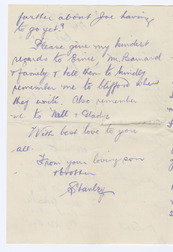 further about Joe having
to go yet?
Please give my kindest
regards to Ernie, Mr. Barnard
& family & tell them to kindly
remember me to Clifford when
they write. Also remember
me to Nell & Dad.
With best love to you
all.
From your loving son
& brother
Stanley